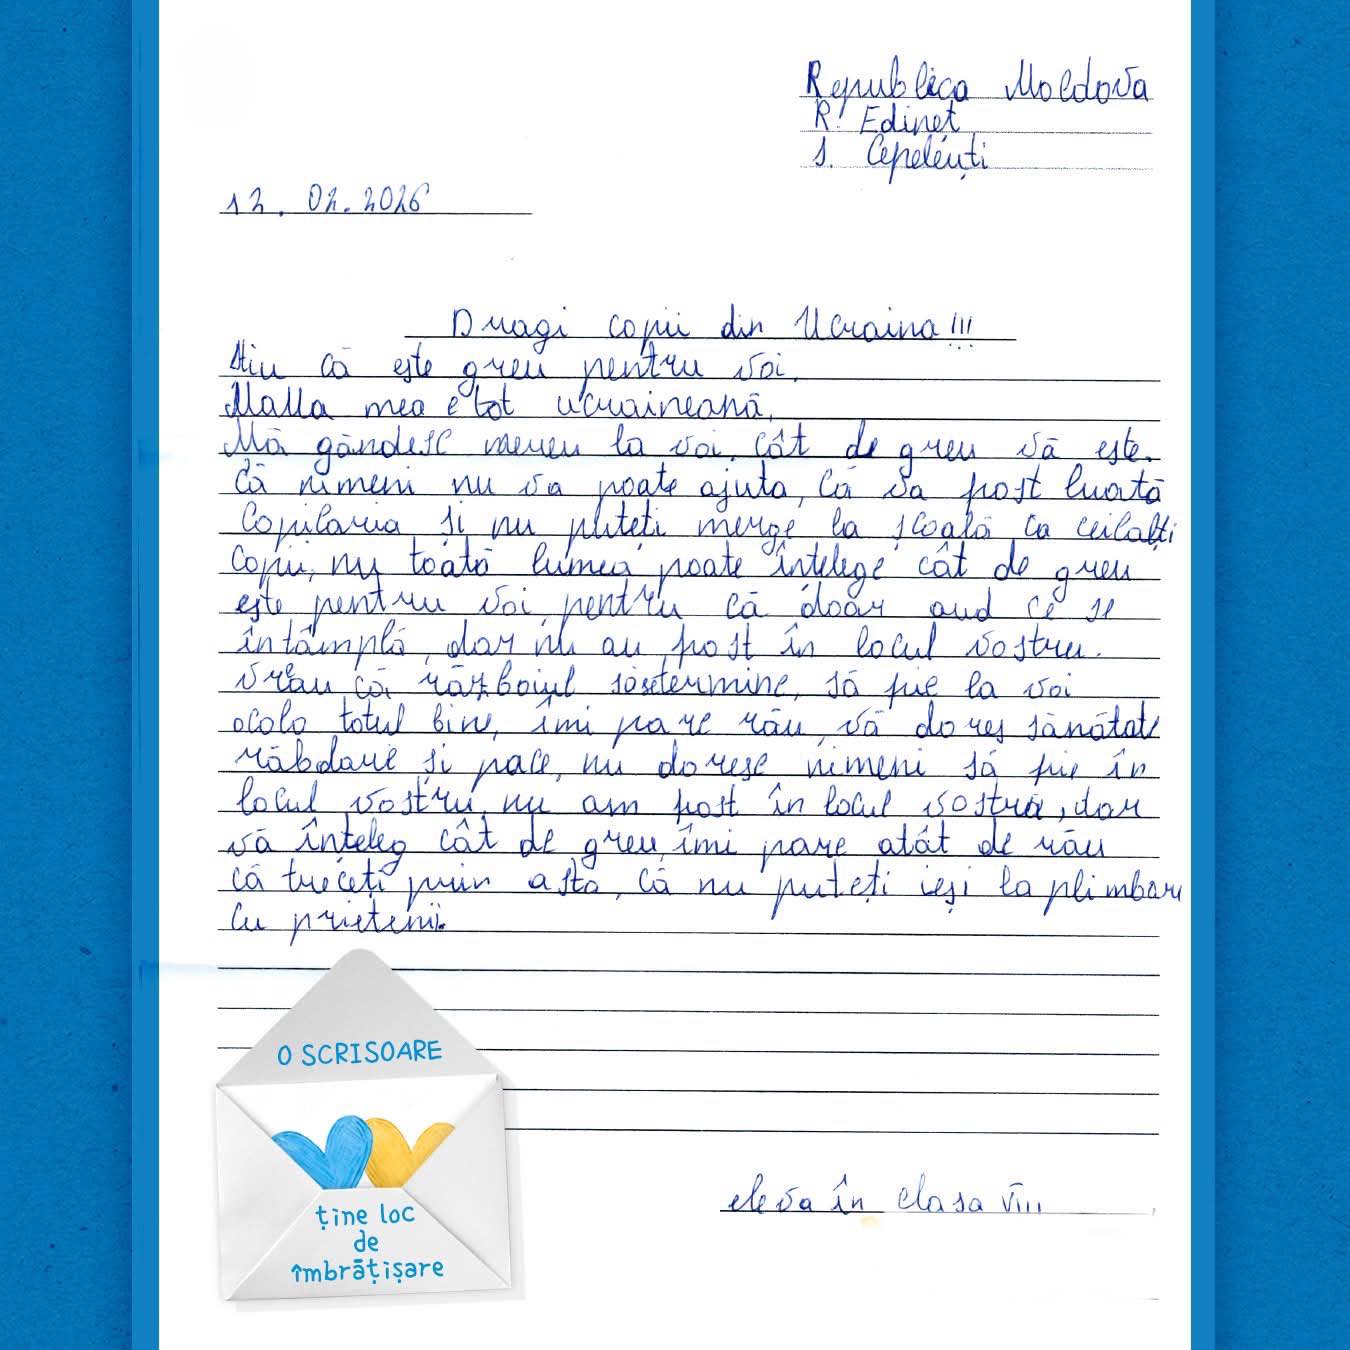 Republica Moldova
R. Edineț
s. Cepeleuți
12. 02. 2026
Dragi copii din Ucraina!!!
Știu că este greu pentru voi.
Mama mea e tot ucraineană.
Mă gândesc mereu la voi. cât de greu vă este.
Că nimeni nu va poate ajuta, Că va fost luată
Copilaria și nu puteți merge la școală ca ceilalți
Copii, nu toată lumea poate înțelege cât de greu
este pentru voi, pentru că doar aud ce se
întâmplă, dar nu au fost în locul vostru.
Vreau că războiul să se termine, să fie la voi
acolo totul bine, îmi pare rău, vă dores sănătate
răbdare și pace, nu doresc nimeni să fie în
locul vostru, nu am fost în locul vostru, dar
vă înțeleg cât de greu, îmi pare atât de rău
că treceți prin asta, că nu puteți ieși la plimbare
cu prietenii.
O SCRISOARE
ține loc
de
îmbrățișare
eleva în clasa VIII